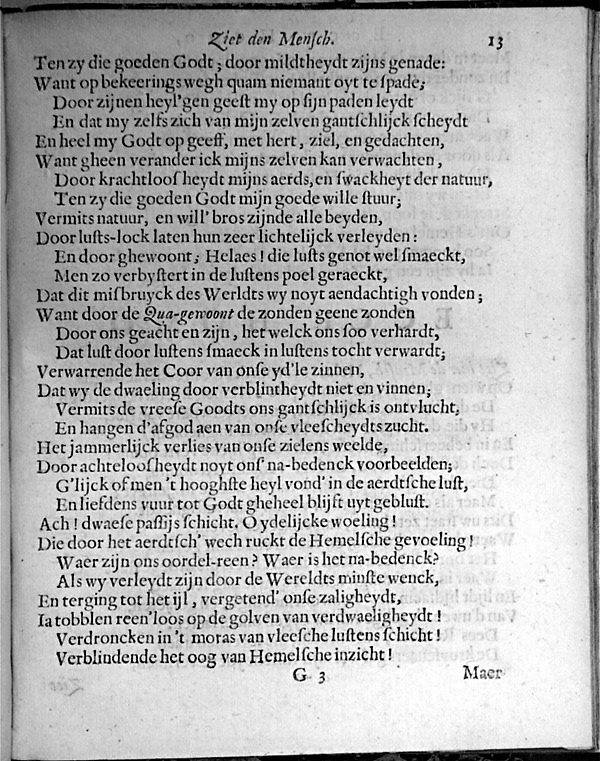 Ziet den Mensch. 13
Ten zy die goeden Godt; door mildtheydt zijns genade:
Want op bekeerings wegh quam niemant oyt te spade;
Door zijnen heyl'gen geest my op sijn paden leydt
En dat my zelfs zich van mijn zelven gantschlijck scheydt
En heel my Godt op geeff, met hert, ziel, en gedachten,
Want gheen verander ick mijns zelven kan verwachten,
Door krachtloosheydt mijns aerds, en swackheyt der natuur,
Ten zy die goeden Godt mijn goede wille stuur;
Vermits natuur, en will' bros zijnde alle beyden,
Door lusts-lock laten hun zeer lichtelijck verleyden:
En door ghewoont; Helaes! die lusts genot wel smaeckt,
Men zo verbystert in de lustens poel geraeckt,
Dat dit misbruyck des Werldts wy noyt aendachtigh vonden;
Want door de Qua-gewoont de zonden geene zonden
Door ons geacht en zijn, het welck ons soo verhardt,
Dat lust door lustens smaeck in lustens tocht verwardt;
Verwarrende het Coor van onse yd'le zinnen,
Dat wy de dwaeling door verblintheydt niet en vinnen;
Vermits de vreese Goodts ons gantschlijck is ontvlucht,
En hangen d'afgod aen van onse vleescheydts zucht.
Het jammerlijck verlies van onse zielens weelde,
Door achteloosheydt noyt ons' na-bedenck voorbeelden;
G'lijck of men 't hooghste heyl vond' in de aerdtsche lust,
En liefdens vuur tot Godt gheheel blijft uyt geblust.
Ach! dwaese passijs schicht. O ydelijcke woeling!
Die door het aerdtsch' wech ruckt de Hemelsche gevoeling!
Waer zijn ons oordel-reen? Waer is het na-bedenck?
Als wy verleydt zijn door de Wereldts minste wenck,
En terging tot het ijl, vergetend' onse zaligheydt,
Ia tobblen reen'loos op de golven van verdwaeligheydt!
Verdroncken in 't moras van vleesche lustens schicht!
Verblindende het oog van Hemelsche inzicht!
G 3 Maer